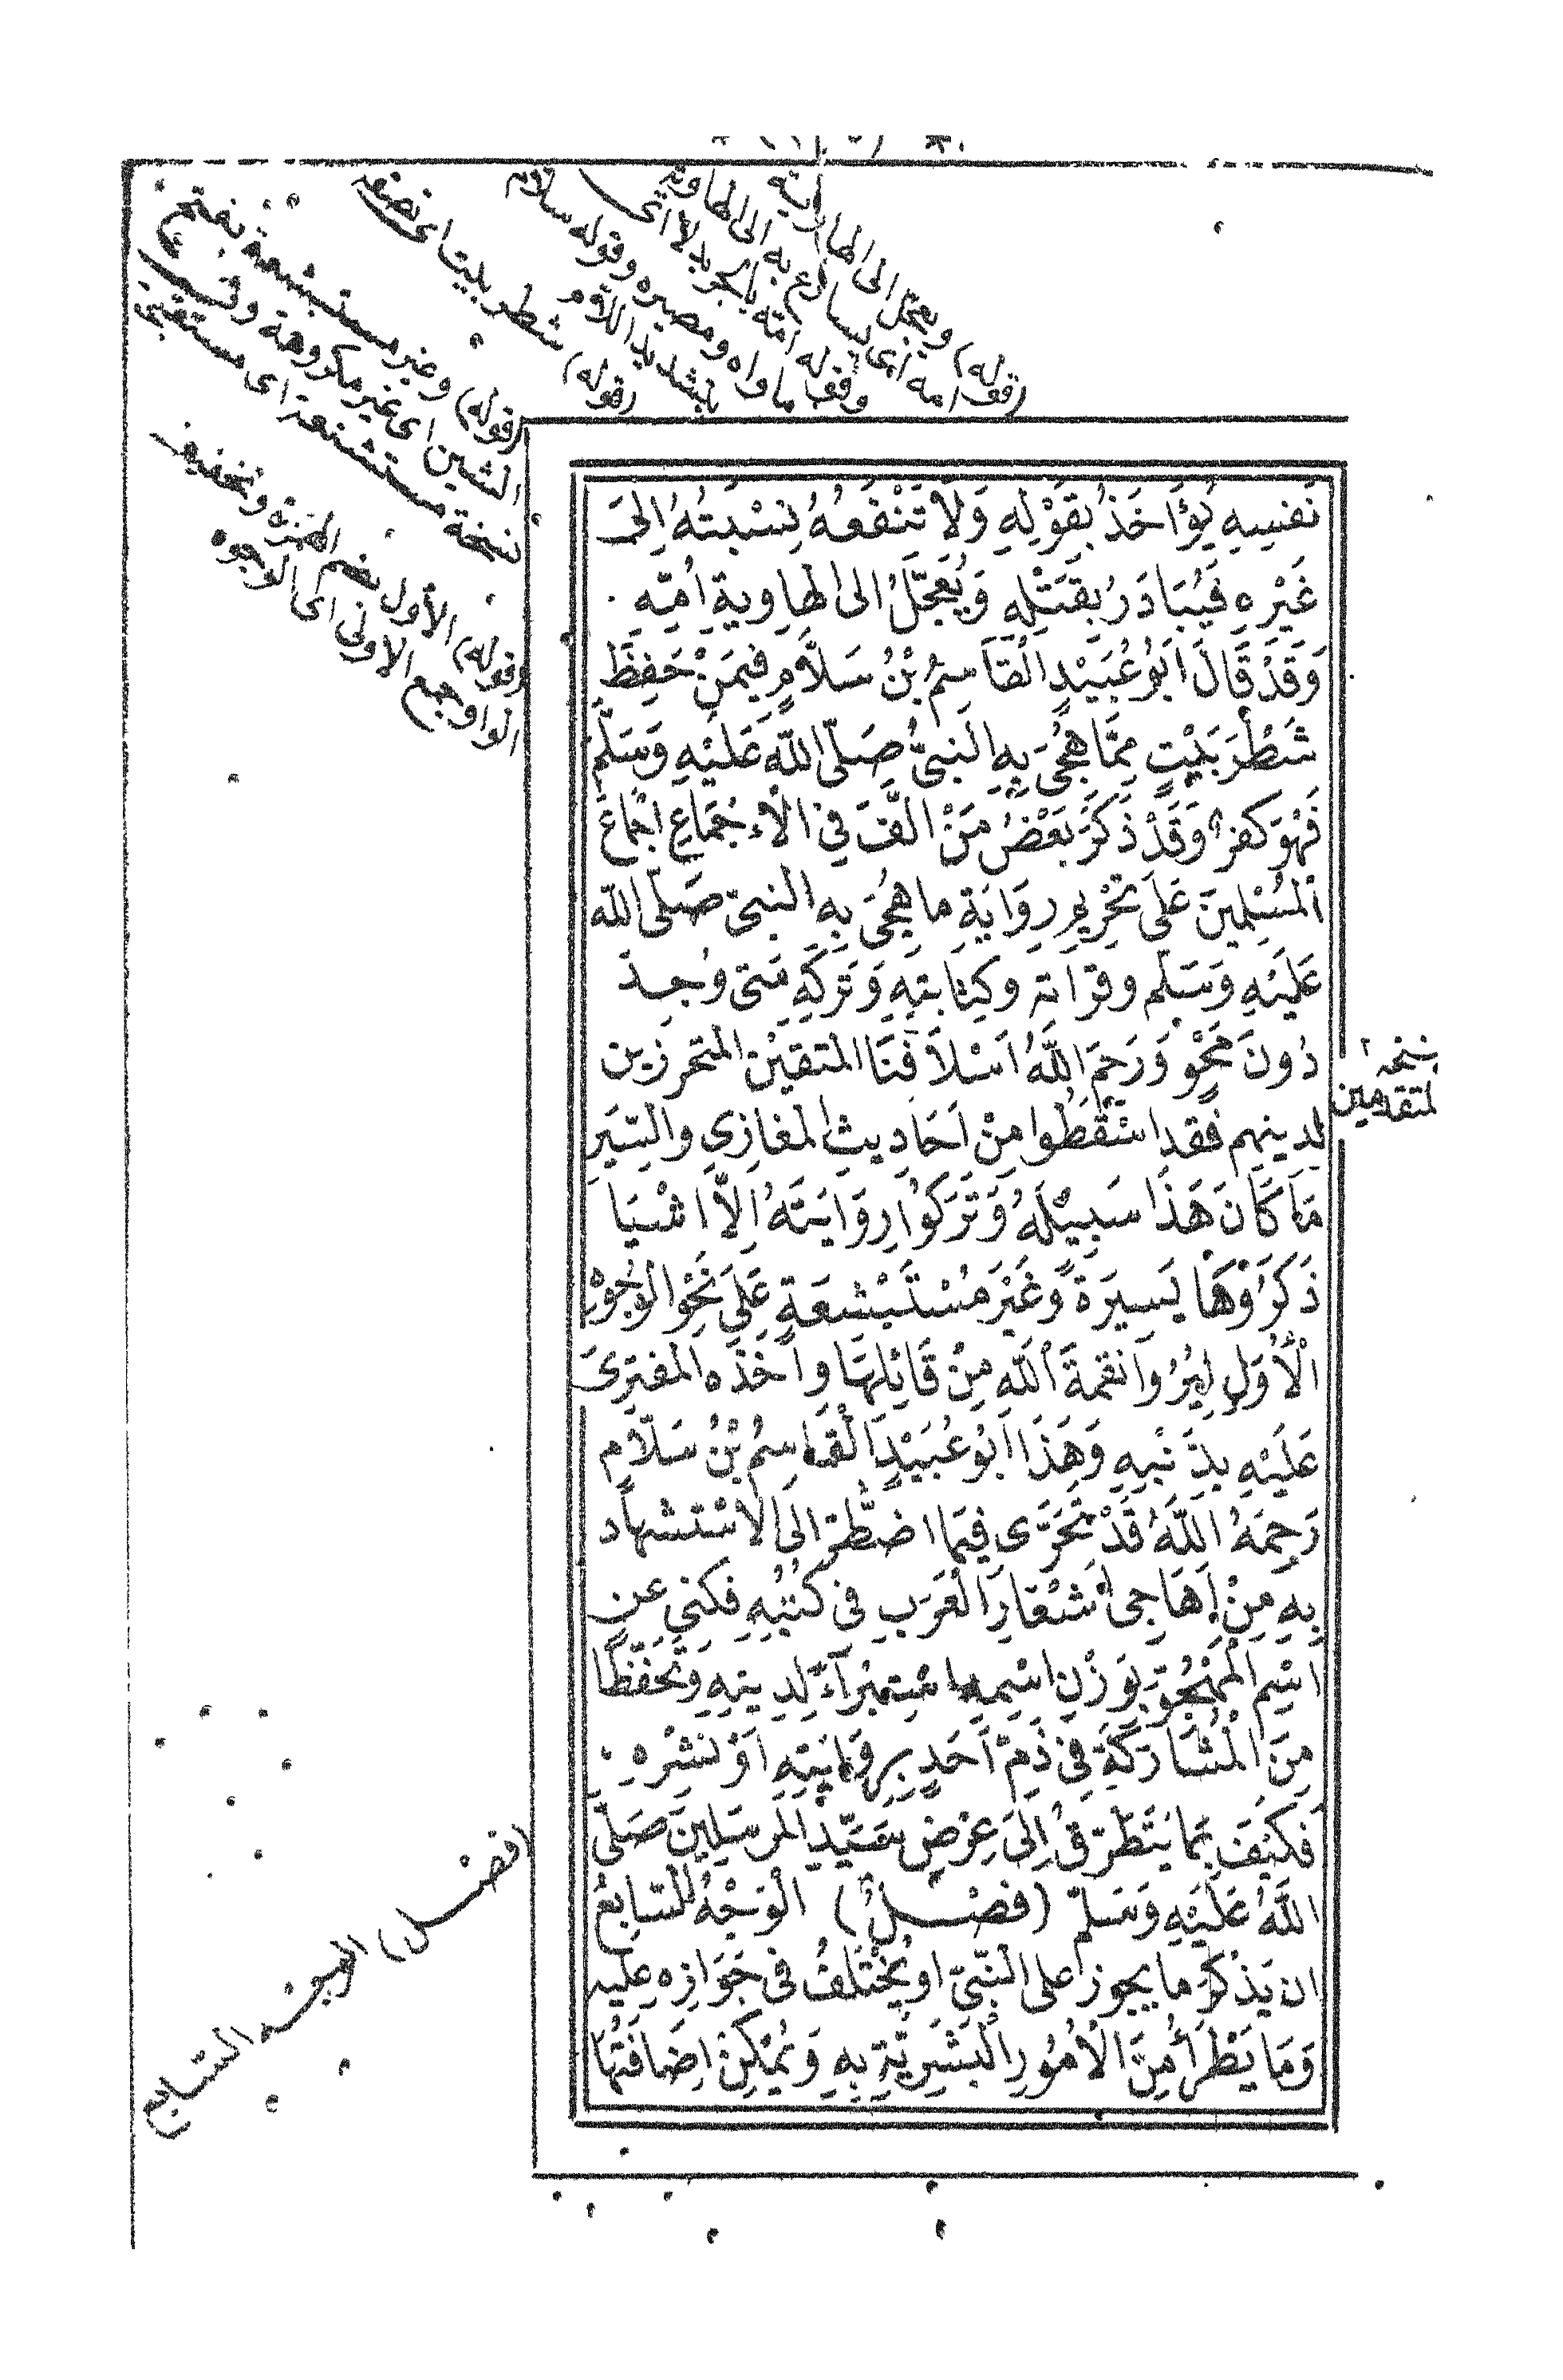 نَفسِهِ يُؤَاخَذُ بِقَوْلِهِ وَلَا تَنْفَعُهُ نِسْبَتُهُ اِلىَ
غَيْرِهِ فَيُبَادَرُ بِقَتْلِهِ وَيُعَجَّلُ الى الهَاوِيةِ اُمِّهِ
وَقَدْ قَالَ اَبوُ عُبَيْدٍ القَاسِمُ بْنُ سَلَّامٍ فيمَنْ حَفِظَ
شَطْرَ بَيْتٍ مِمَّا هُجِىَ بِهِ النَبىُّ صَلّى اللّه عَلَيْهِ وَسَلّم
فَهْوَ كفرٌ وَقَدْ ذَكَرَ بَعْضُ مَنْ الَّفَ فِى الْاِجْمَاعِ اِجْمَاعَ
الْمُسْلِمينَ عَلَى تَحْرِيمِ رِوَايَةِ ما هُجِىَ بِهِ النبىّ صَلّى اللّه
عَلَيْهِ وَسَلّم وقرَاته وكِتَابَتِهِ وَتَرْكِهِ مَتى وُجِدَ
دُونَ مَحْوٍ وَرَحِمَ اللّهُ اَسْلَافَنَا المتقينَ المتحرزين
لدينهم فقد اسْقَطُوا مِنْ اَحَادِيثِ المغَازِى والسِّيَر
مَا كَانَ هَذَا سَبِيْلَهُ وَتَرَكُوا رِوَايَتَهُ اِلّا اشْيَا
ذَكَرُوْهَا يَسيرَةً وَغَيْرَ مُسْتَبْشعَةٍ عَلَى نَحْوِ الْوُجُوْهِ
الْاُوَلِ لِيُرُوا نقمةَ اللّهِ مِنْ قَائِلِهَا وأَخْذَه المفتَرِىَ
عَلَيْهِ بِذَنْبِهِ وَهَذَا اَبوُ عُبَيْدٍ الْقَاسِمُ بْنُ سَلّامٍ
رَحِمَهُ اللّهُ قَدْ تَحَرَّى فِيمَا اضْطُرّ الَى الْاسْتشهَاد
بِهِ مِنْ اَهَاجِى اَشْعَارِ الْعَرَبِ فى كُتُبِهِ فكنى عن
اسْمِ الْمَهْجُوّ بِوَزْنِ اسْمِهِ اسْتِبْرَآءً لِدِينِهِ وَتَحَفّظًا
مِنَ الْمُشَارَكَةِ فِى ذَمّ اَحَدٍ بِرِوَايَتِهِ اَوْ نَشْرِهِ
فَكَيْفَ بِمَا يَتَطَرّقُ اِلَى عِرْضِ سَيّدِ المرسَلِينَ صَلّى
اللّهُ عَلَيْهِ وَسَلّمْ (فصْلٌ) الْوَجْهُ السّابِعُ
ان يَذْكُرَ ما يجوز على النّبىّ او يُخْتَلَفُ فى جَوَازِهِ عليه
وَمَا يَطْرَأُ مِنَ الْاُمُورِ البَشَرِيّةِ بِهِ وَيُمْكِنُ اِضَافَتُهَا
نسخه
المتقدمين
(قوله) ويعجّل الى الهاوية
(قوله) شطر بيت اى نصفه
(قوله) وغير مستبشعة بفتح
الشين اى غير مكروهة وفى
نسخة مستشنعة اى مستقبحة
(قوله) الأول بضم الهمزة وتخفيف
الواو جمع الاولى اى الوجوه
(فصل) الوجه السابع